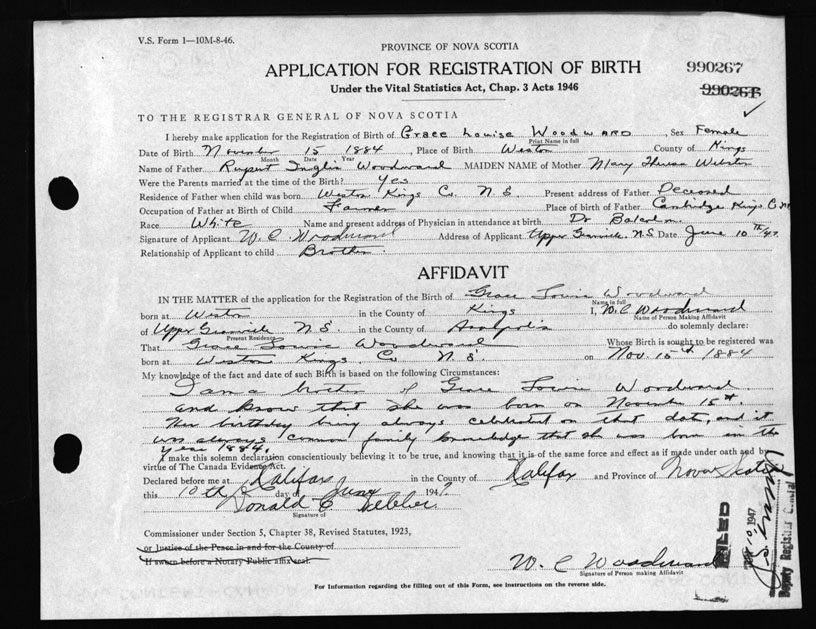 V.S. Form 1—10M-8-46.
PROVINCE OF NOVA SCOTIA
APPLICATION FOR REGISTRATION OF BIRTH
990267
Under the Vital Statistics Act, Chap. 3 Acts 1946
TO THE REGISTRAR GENERAL OF NOVA SCOTIA
I hereby make application for the Registration of Birth of Grace Louise WOODWARD, Sex Female
Print Name in full
Date of Birth November 15 1884, Place of Birth Weston County of Kings
Month Date Year
Name of Father Rupert Inglis Woodward MAIDEN NAME of Mother Mary Theresa Webster
Were the Parents married at the time of the Birth? Yes
Residence of Father when child was born Weston Kings Co. N.S. Present address of Father Deceased
Occupation of Father at Birth of Child Farmer Place of birth of Father Cambridge Kings Co NS
Race White Name and present address of Physician in attendance at birth Dr
Signature of Applicant W. C Woodward Address of Applicant Upper Granville, N.S. Date June 10th/47.
Relationship of Applicant to child Brother.
AFFIDAVIT
IN THE MATTER of the application for the Registration of the Birth of Grace Louise Woodward
Name in full
born at Weston in the County of Kings I, W. C Woodward
Name of Person Making Affidavit
of Upper Granville N.S. in the County of Annapolis do solemnly declare:
Present Residence
That Grace Louise Woodward Whose Birth is sought to be registered was
born at Weston Kings Co N.S. on Nov. 15th 1884
My knowledge of the fact and date of such Birth is based on the following Circumstances:
I am a brother of Grace Louise Woodward
and know that she was born on November 15th.
Her birthday being always celebrated on that date, and it
was always common family knowledge that she was born in the
year 1884.
I make this solemn declaration conscientiously believing it to be true, and knowing that it is of the same force and effect as if made under oath and by
virtue of The Canada Evidence Act.
Declared before me at Halifax in the County of Halifax and Province of Nova Scotia
this 10th day of June 1947
Donald C
Signature of
Commissioner under Section 5, Chapter 38, Revised Statutes, 1923,
or Justice of the Peace in and for the County of
If sworn before a Notary Public affix seal.
W. C Woodward
Signature of Person making Affidavit
FILED
10, 1947
Deputy Registrar General
For Information regarding the filling out of this Form, see instructions on the reverse side.